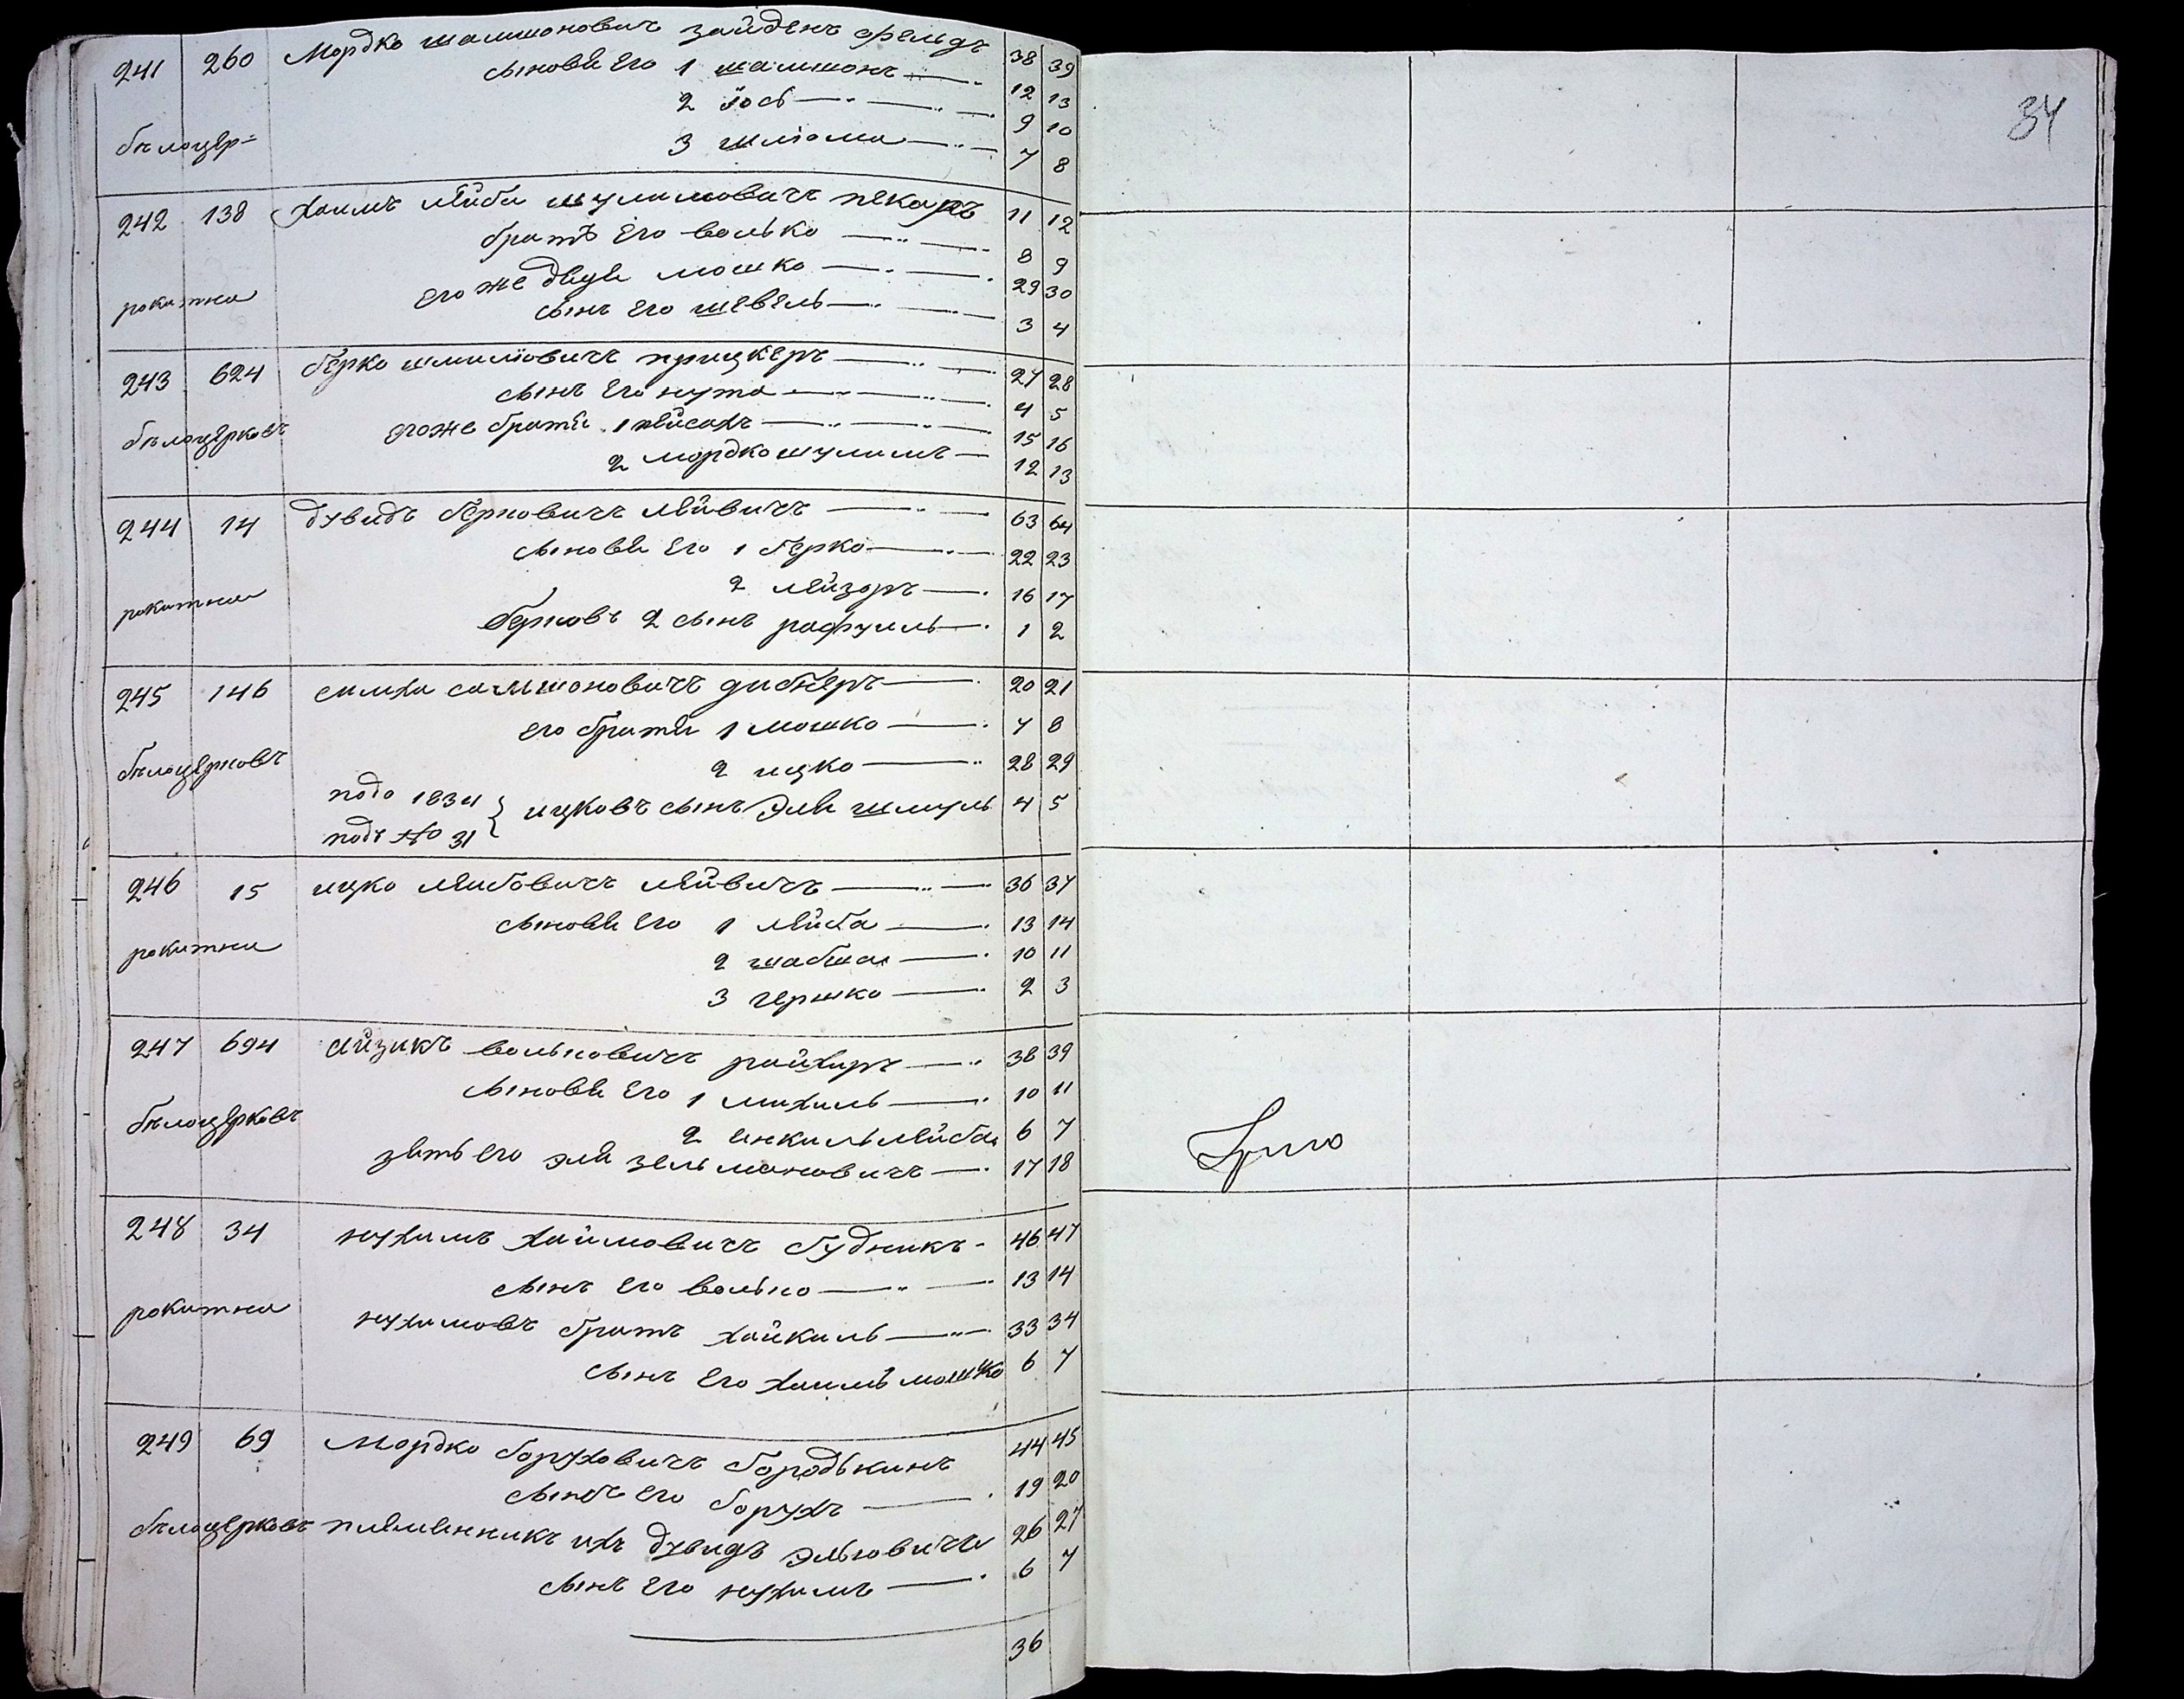 34
241 260 Мордко шамшоновичъ зайденъ фельдъ 38 39
сыновя его 1 шамшонъ 12 13
2 йось 9 10
бѣлоцер= 3 шлiома 7 8
242 138 Хаимъ лейба шулимовичъ пекаръ 11 12
братъ его волько 8 9
его же дядя мошко 29 30
рокитна сынъ его шевель 3 4
243 624 берко шлиміовичъ прицкеръ 27 28
сынъ его нута 4 5
бѣлоцерковъ его же братя 1 пейсахъ 15 16
2 мордко шулимъ 12 13
244 14 дувидъ берковичъ лейвичъ 63 64
сыновя его 1 берко 22 23
2 лейзоръ 16 17
рокитна берковъ 2 сынъ рафуилъ 1 2
245 146 симха самшоновичъ дибнеръ 20 21
его братя 1 мошко 7 8
бѣлоцерковъ 2 ицко 28 29
подо 1834 подъ № 31 } ицковъ сынъ эля шмуль 4 5
246 15 ицко лейбовичъ лейвичъ 36 37
сыновя его 1 лейба 13 14
рокитна 2 шабша 10 11
3 гершко 2 3
247 694 айзикъ вольковичъ райхиръ 38 39
сыновя его 1 михиль 10 11
бѣлоцерковъ 2 янкиль лейба 6 7
зять его эля зельмановичъ 17 18
248 34 нухимъ хаймовичъ будникъ 46 47
сынъ его волько 13 14
рокитна нухимовъ братъ хайкиль 33 34
сынъ его хаимъ мошко 6 7
249 69 Мордко боруховичъ бородькинъ 44 45
сынъ его борухъ 19 20
бѣлоцерковъ племенникъ ихъ дувидъ эльковичъ 26 27
сынъ его нухимъ 6 7
36